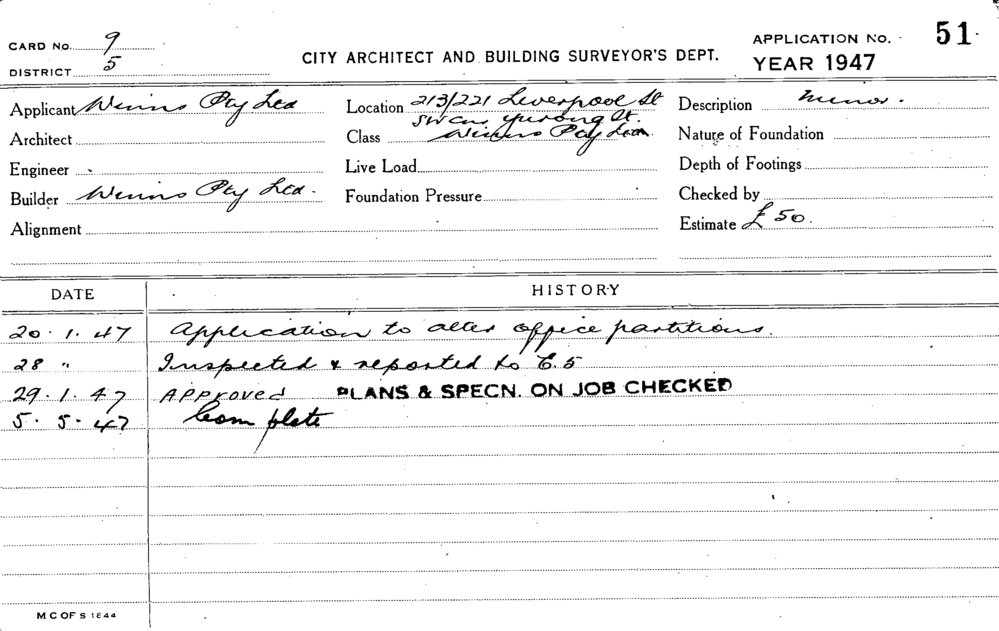 CARD No. 9
DISTRICT 5
CITY ARCHITECT AND BUILDING SURVEYOR'S DEPT.
APPLICATION No. 51
YEAR 1947
Applicant Winns Pty Ltd
Architect
Engineer
Builder Winns Pty Ltd.
Alignment
Location 213/221 Liverpool St
SW Cnr Yurong St.
Class Winns Pty Ltd.
Live Load
Foundation Pressure
Description Minor.
Nature of Foundation
Depth of Footings
Checked by
Estimate £50.
DATE HISTORY
20.1.47 Application to alter office partitions.
28 " Inspected & reported to C.5
29.1.47 Approved PLANS & SPECN. ON JOB CHECKED
5.5.47 Complete
M C OF S 1844